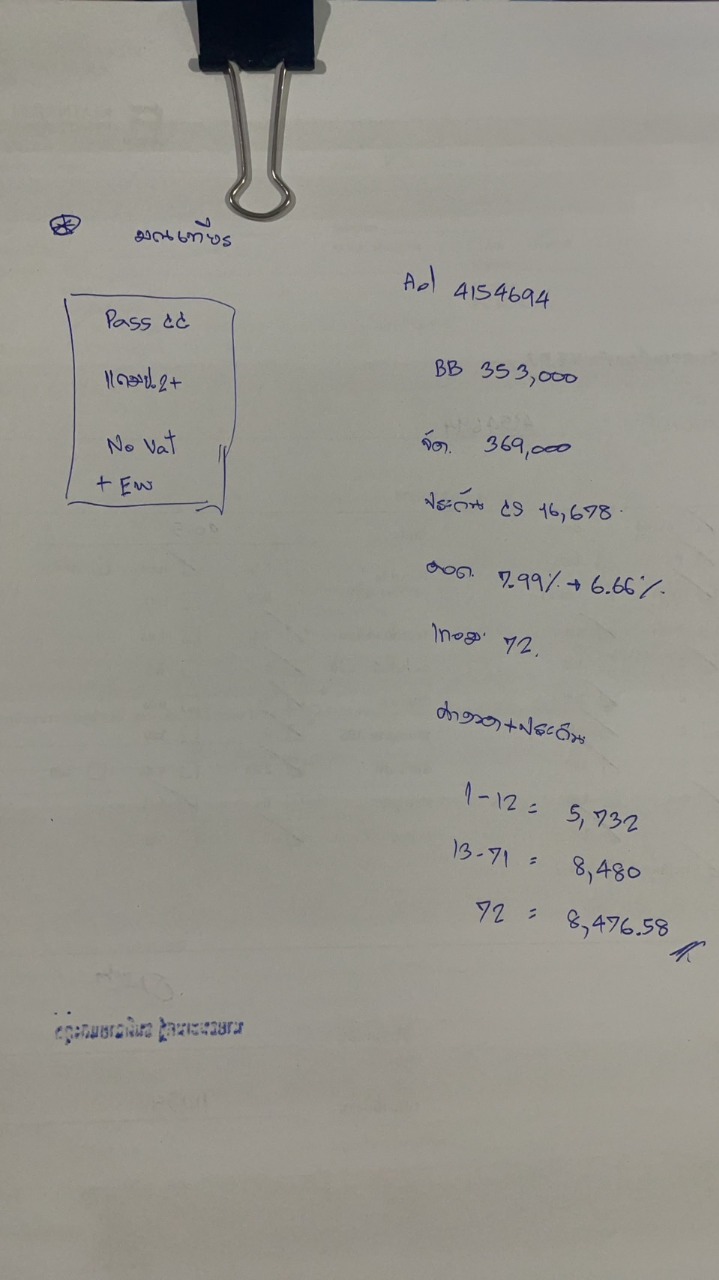 มณเฑียร
Pass ดด
แถมป.2+
No Vat
+ EW
Aol 4154694
BB 353,000
จัด 369,000
ประกัน ดร 16,678.
ดอก 7.99% → 6.66%
72.
ค่างวด+ประกัน
1-12 = 5,732
13-71 = 8,480
72 = 8,476.58